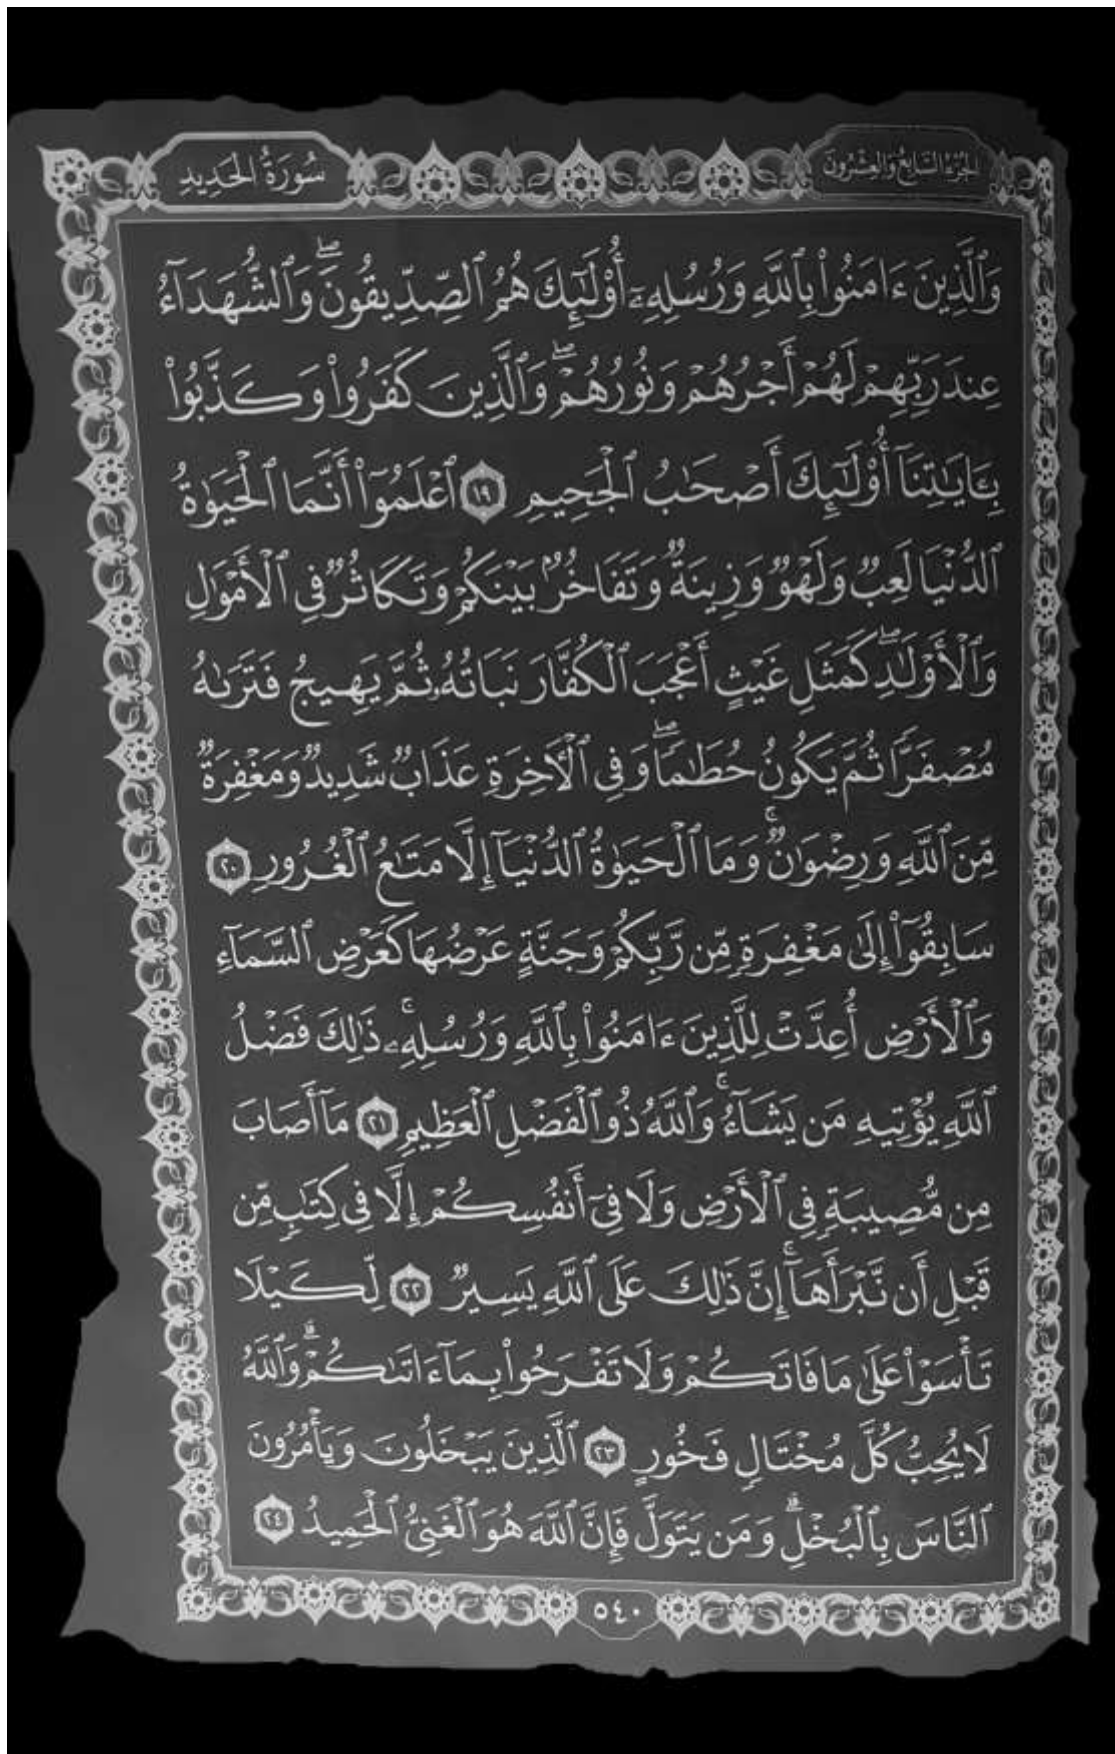 الجزء السابع والعشرون
سُورَةُ الحَدِيدِ
وَٱلَّذِينَ ءَامَنُوا۟ بِٱللَّهِ وَرُسُلِهِۦٓ أُو۟لَـٰٓئِكَ هُمُ ٱلصِّدِّيقُونَۖ وَٱلشُّهَدَآءُ
عِندَ رَبِّهِمْ لَهُمْ أَجْرُهُمْ وَنُورُهُمْۖ وَٱلَّذِينَ كَفَرُوا۟ وَكَذَّبُوا۟
بِـَٔايَـٰتِنَآ أُو۟لَـٰٓئِكَ أَصْحَـٰبُ ٱلْجَحِيمِ ١٩ ٱعْلَمُوٓا۟ أَنَّمَا ٱلْحَيَوٰةُ
ٱلدُّنْيَا لَعِبٌ وَلَهْوٌ وَزِينَةٌ وَتَفَاخُرٌۢ بَيْنَكُمْ وَتَكَاثُرٌ فِى ٱلْأَمْوَٰلِ
وَٱلْأَوْلَـٰدِۖ كَمَثَلِ غَيْثٍ أَعْجَبَ ٱلْكُفَّارَ نَبَاتُهُۥ ثُمَّ يَهِيجُ فَتَرَىٰهُ
مُصْفَرًّا ثُمَّ يَكُونُ حُطَـٰمًاۖ وَفِى ٱلْـَٔاخِرَةِ عَذَابٌ شَدِيدٌ وَمَغْفِرَةٌ
مِّنَ ٱللَّهِ وَرِضْوَٰنٌۚ وَمَا ٱلْحَيَوٰةُ ٱلدُّنْيَآ إِلَّا مَتَـٰعُ ٱلْغُرُورِ ٢٠
سَابِقُوٓا۟ إِلَىٰ مَغْفِرَةٍ مِّن رَّبِّكُمْ وَجَنَّةٍ عَرْضُهَا كَعَرْضِ ٱلسَّمَآءِ
وَٱلْأَرْضِ أُعِدَّتْ لِلَّذِينَ ءَامَنُوا۟ بِٱللَّهِ وَرُسُلِهِۦۚ ذَٰلِكَ فَضْلُ
ٱللَّهِ يُؤْتِيهِ مَن يَشَآءُۚ وَٱللَّهُ ذُو ٱلْفَضْلِ ٱلْعَظِيمِ ٢١ مَآ أَصَابَ
مِن مُّصِيبَةٍ فِى ٱلْأَرْضِ وَلَا فِىٓ أَنفُسِكُمْ إِلَّا فِى كِتَـٰبٍ مِّن
قَبْلِ أَن نَّبْرَأَهَآۚ إِنَّ ذَٰلِكَ عَلَى ٱللَّهِ يَسِيرٌ ٢٢ لِّكَيْلَا
تَأْسَوْا۟ عَلَىٰ مَا فَاتَكُمْ وَلَا تَفْرَحُوا۟ بِمَآ ءَاتَىٰكُمْۗ وَٱللَّهُ
لَا يُحِبُّ كُلَّ مُخْتَالٍ فَخُورٍ ٢٣ ٱلَّذِينَ يَبْخَلُونَ وَيَأْمُرُونَ
ٱلنَّاسَ بِٱلْبُخْلِۗ وَمَن يَتَوَلَّ فَإِنَّ ٱللَّهَ هُوَ ٱلْغَنِىُّ ٱلْحَمِيدُ ٢٤
٥٤٠